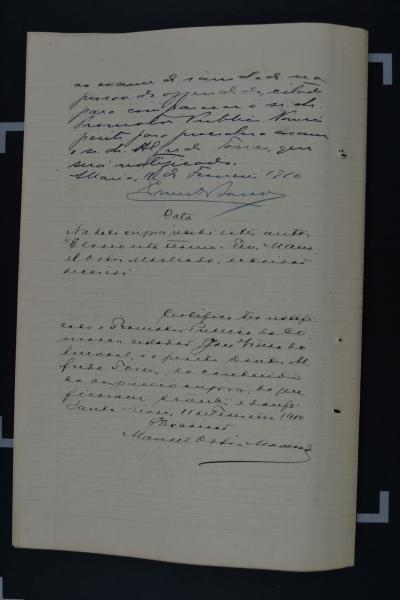 ao exame de sanidade na
pessoa do offendido, citado
para comparecer o sr. dr.
Promotor Publico. Nomeio
perito para proceder o exame
o sr. dr. Alfredo Torres, que
será notificado.
S. Maria, 11 de Fevereiro 1910
Data
Na data supra recebi estes autos
E lavro este termo. Eu, Mano
el Machado, escrivão
escrevi
Certifico ter notifi
cado o Promotor Publico da Co
marca cidadão João
e o perito Doutor Al
fredo Torres, do conteúdo
do despacho supra, do que
ficaram scientes e dou fé
Santa Maria, 11 de Fevereiro 1910
O Escrivão
Manoel